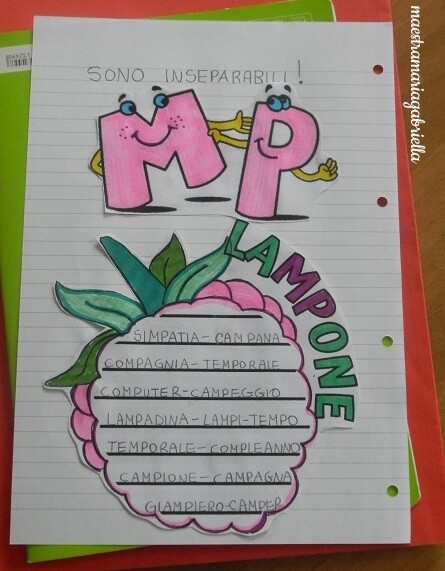 SONO INSEPARABILI!
MP
LAMPONE
SIMPATIA-CAMPANA
COMPAGNIA-TEMPORALE
COMPUTER-CAMPEGGIO
LAMPADINA-LAMPI-TEMPO
TEMPORALE-COMPLEANNO
CAMPIONE-CAMPAGNA
GIAMPIERO-CAMPER
maestramariagabriella